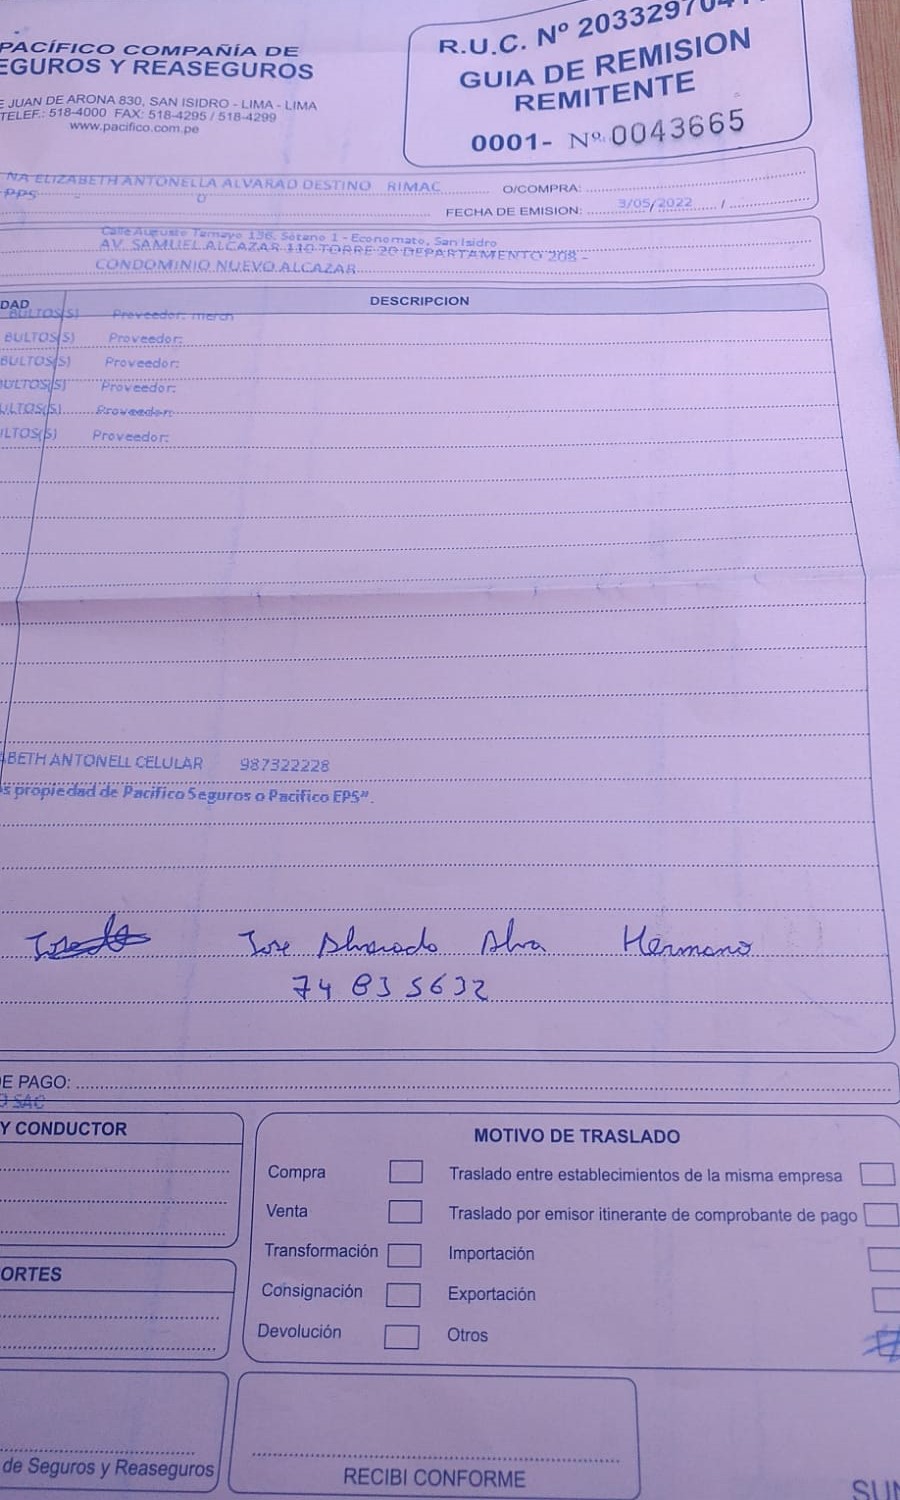 PACÍFICO COMPAÑÍA DE
EGUROS Y REASEGUROS
E JUAN DE ARONA 830, SAN ISIDRO - LIMA - LIMA
TELEF.: 518-4000 FAX: 518-4295 / 518-4299
www.pacifico.com.pe
R.U.C. Nº 2033297041
GUIA DE REMISION
REMITENTE
0001- Nº 0043665
NA ELIZABETH ANTONELLA ALVARAD DESTINO RIMAC
PPS O
O/COMPRA:
FECHA DE EMISION: 3/05/2022 /
Calle Augusto Tamayo 136, Sótano 1 - Economato, San Isidro
AV. SAMUEL ALCAZAR 110 TORRE 20 DEPARTAMENTO 208 -
CONDOMINIO NUEVO ALCAZAR
DAD DESCRIPCION
BULTOS(S) Proveedor: merch
BULTOS(S) Proveedor:
BULTOS(S) Proveedor:
ULTOS(S) Proveedor:
ULTOS(S) Proveedor:
LTOS(S) Proveedor:
ABETH ANTONELL CELULAR 987322228
s propiedad de Pacifico Seguros o Pacifico EPS".
Jose Alvarado Alva Hermano
74835632
E PAGO:
O SAC
Y CONDUCTOR
ORTES
MOTIVO DE TRASLADO
Compra
Traslado entre establecimientos de la misma empresa
Venta
Traslado por emisor itinerante de comprobante de pago
Transformación
Importación
Consignación
Exportación
Devolución
Otros
de Seguros y Reaseguros
RECIBI CONFORME
SUN